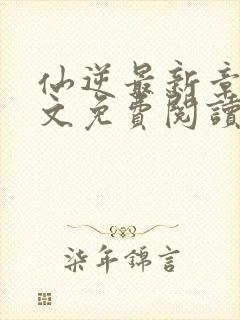 仙逆最新章
文免費閱讀
柒年錦言